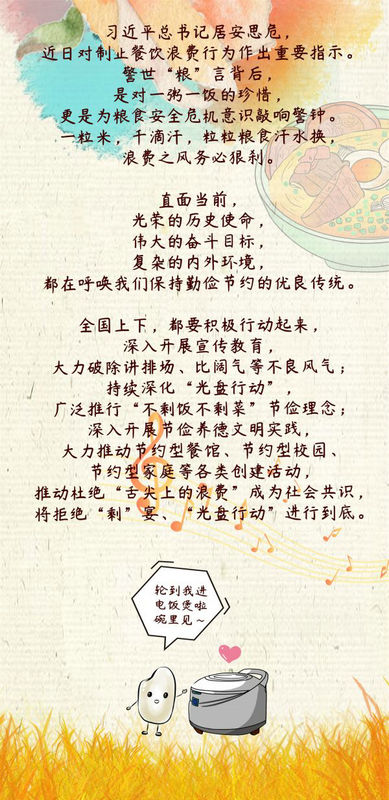 习近平总书记居安思危，
近日对制止餐饮浪费行为作出重要指示。
警世“粮”言背后，
是对一粥一饭的珍惜，
更是为粮食安全危机意识敲响警钟。
一粒米，千滴汗，粒粒粮食汗水换，
浪费之风务必狠刹。
直面当前，
光荣的历史使命，
伟大的奋斗目标，
复杂的内外环境，
都在呼唤我们保持勤俭节约的优良传统。
全国上下，都要积极行动起来，
深入开展宣传教育，
大力破除讲排场、比阔气等不良风气；
持续深化“光盘行动”，
广泛推行“不剩饭不剩菜”节俭理念；
深入开展节俭养德文明实践，
大力推动节约型餐馆、节约型校园、
节约型家庭等各类创建活动，
推动杜绝“舌尖上的浪费”成为社会共识，
将拒绝“剩”宴、“光盘行动”进行到底。
轮到我进
电饭煲啦
碗里见～